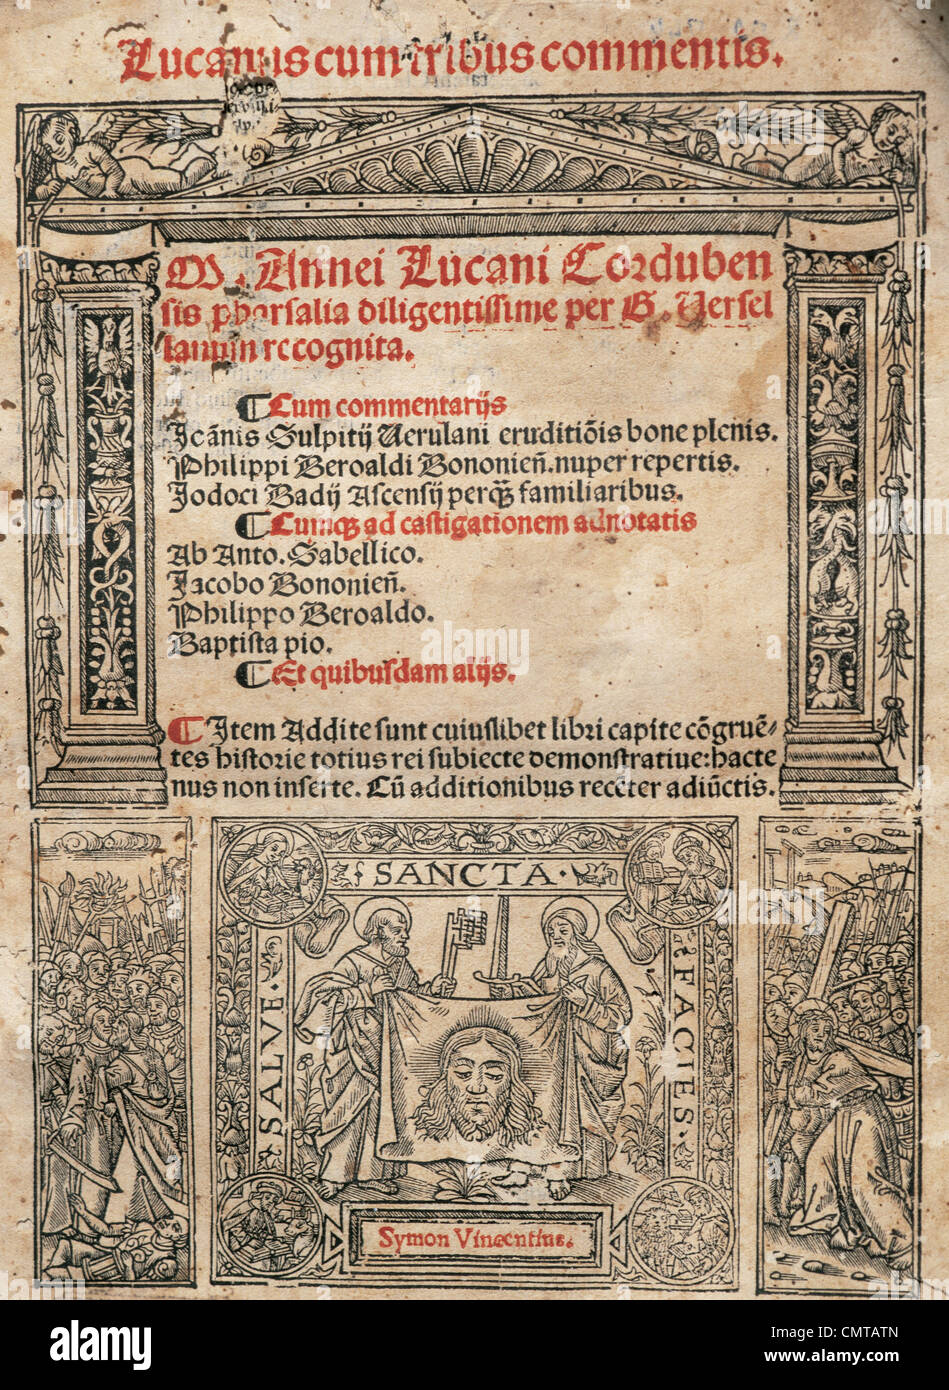 Lucanus cum tribus commentis.
M. Annei Lucani Corduben
sis pharsalia diligentissime per G. Versel
lanum recognita.
¶ Cum commentarijs
Joānis Sulpitij Verulani eruditiōis bone plenis.
Philippi Beroaldi Bononieñ. nuper repertis.
Jodoci Badij Ascensij perqꝫ familiaribus.
¶ Cumqꝫ ad castigationem adnotatis
Ab Anto. Sabellico.
Jacobo Bononieñ.
Philippo Beroaldo.
Baptista pio.
¶ Et quibusdam alijs.
¶ Item Addite sunt cuiuslibet libri capite cōgruē-
tes historie totius rei subiecte demonstratiue: hacte
nus non inserte. Cū additionibus recēter adiūctis.
SALVE · SANCTA · FACIES ·
Symon Vincentius.
alamy
Image ID: CMTATN
www.alamy.com